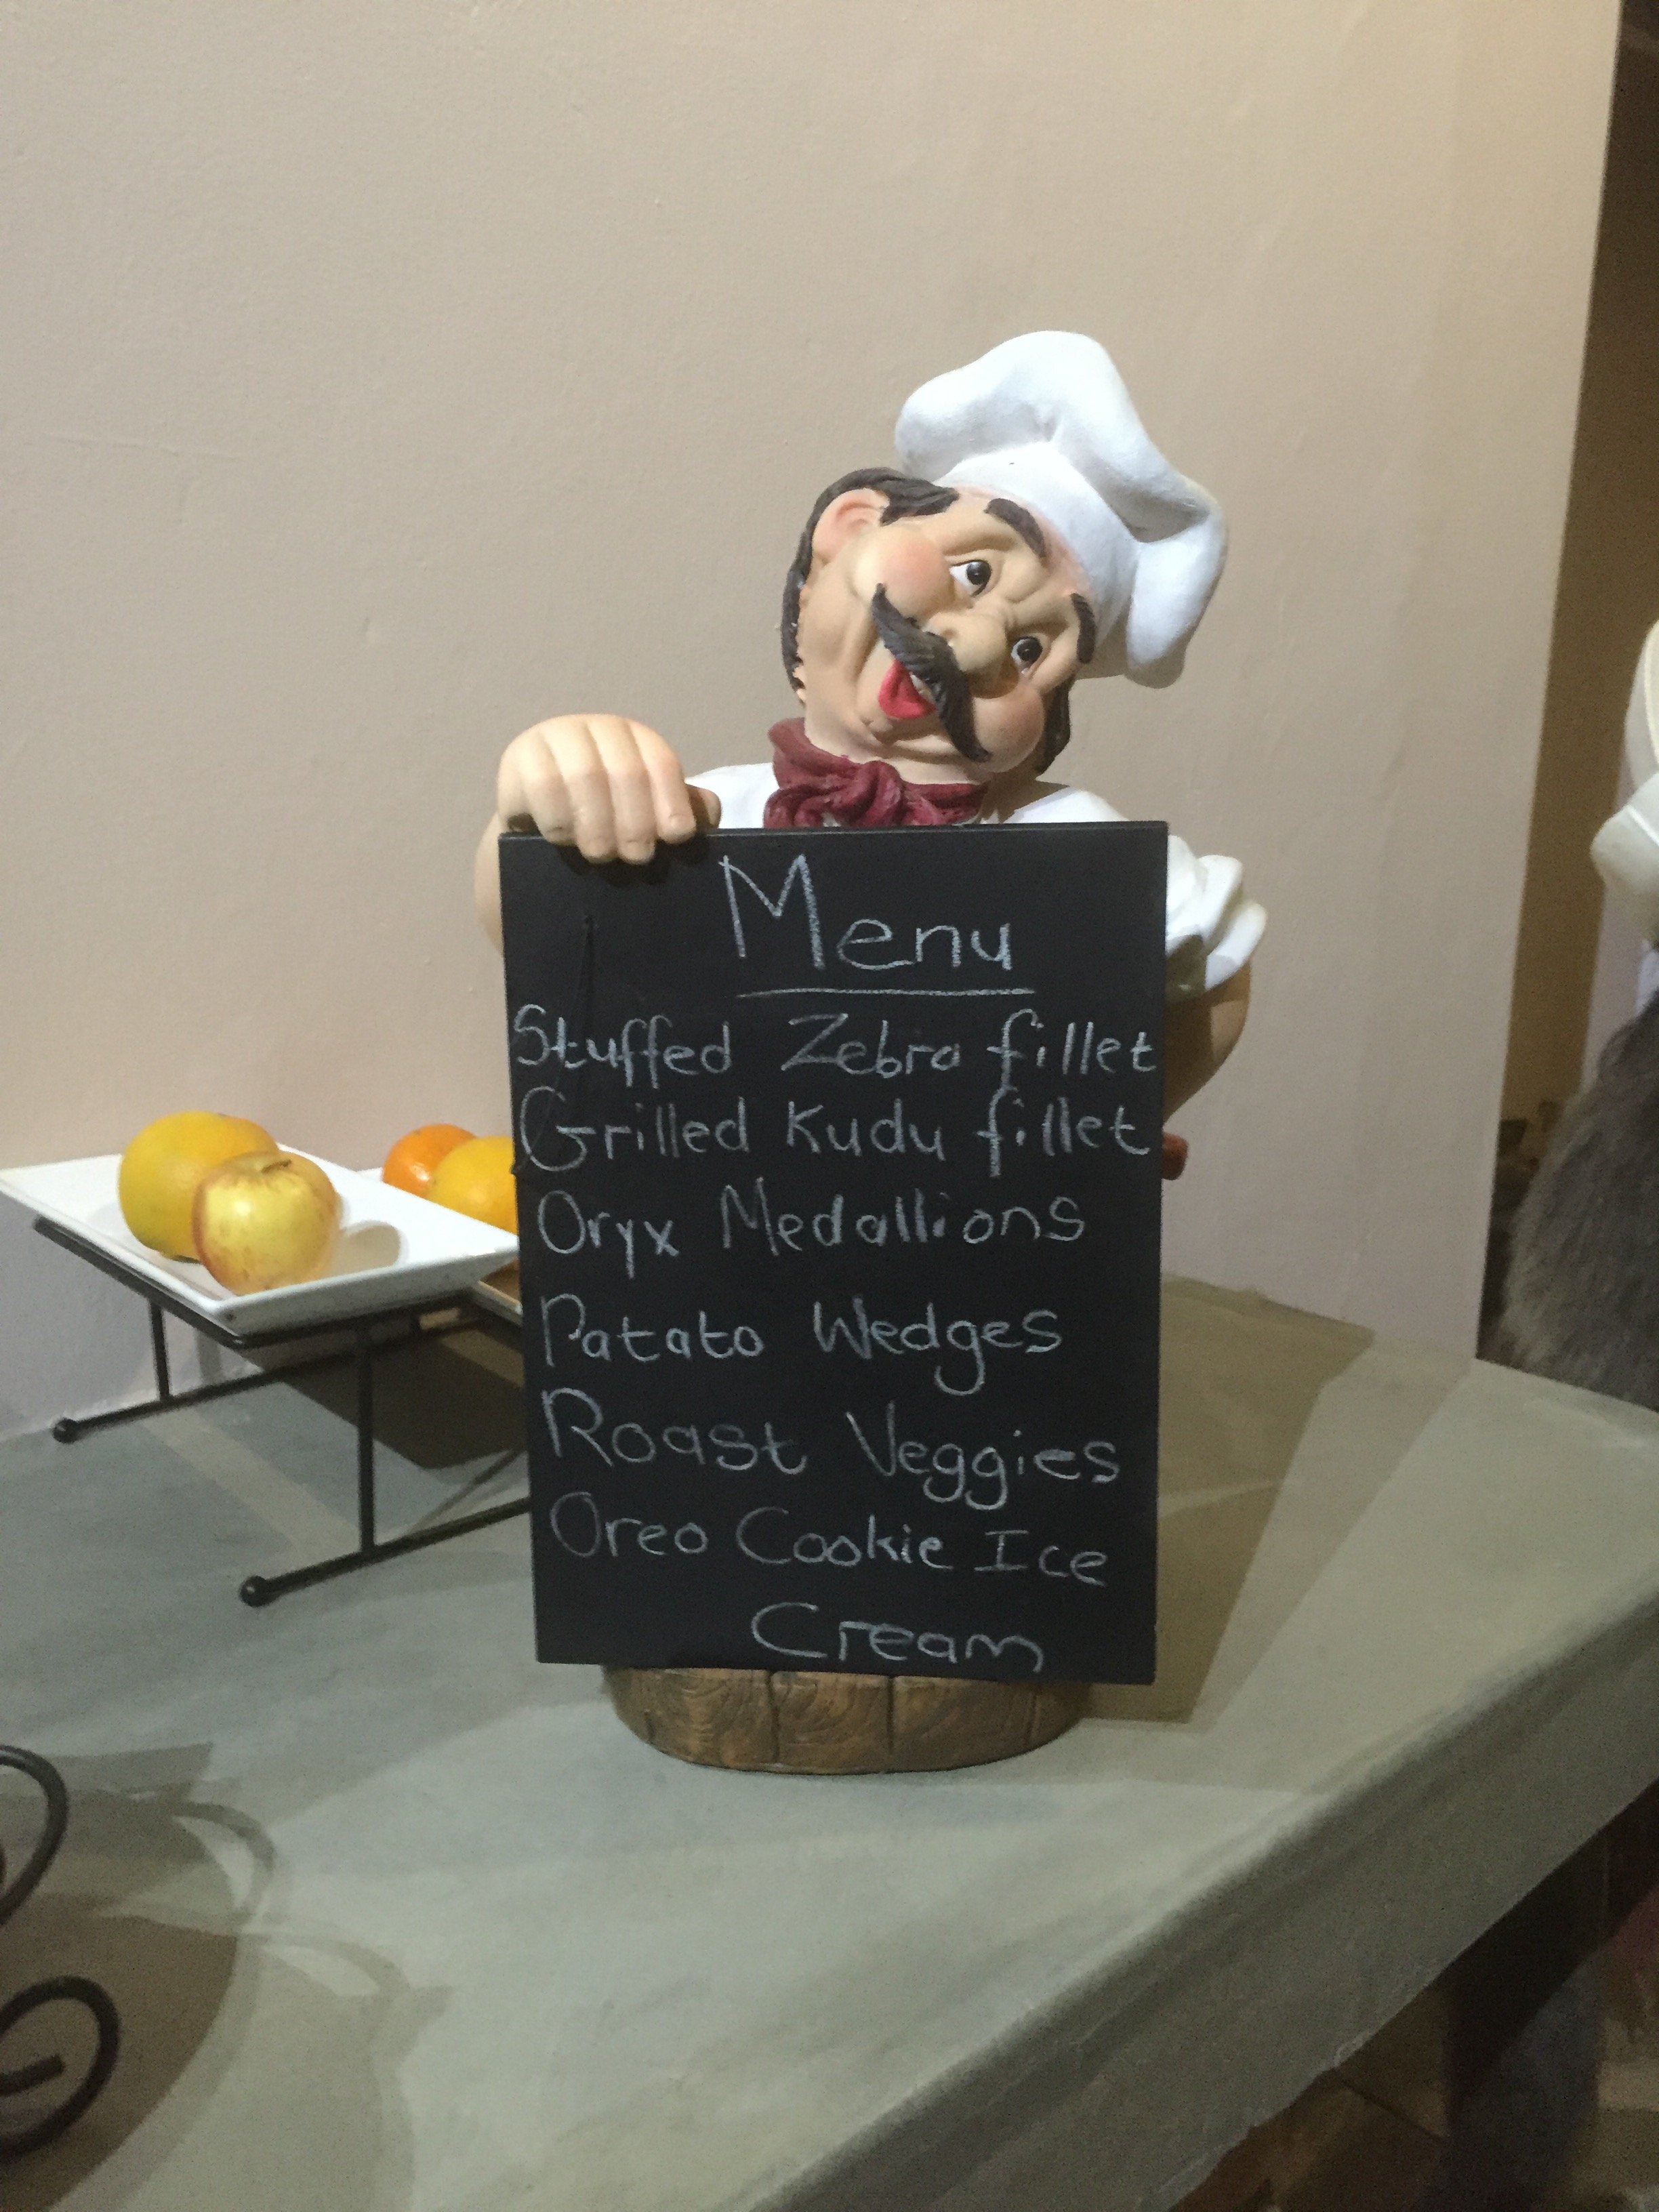 Menu
Stuffed Zebra fillet
Grilled Kudu fillet
Oryx Medallions
Patato Wedges
Roast Veggies
Oreo Cookie Ice
Cream